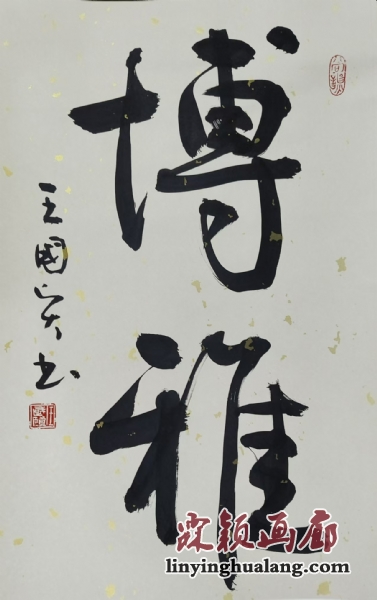 博雅
王國书
霖颖画廊
linyinghualang.com